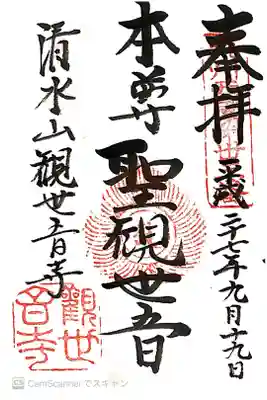 奉拝
平成二十七年九月十九日
本尊 聖観世音
清水山観世音寺
觀世
音寺
CS CamScanner でスキャン